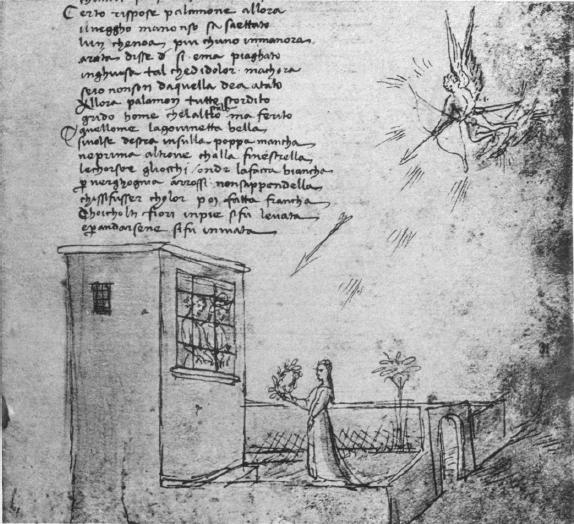 Certo rispose palamone allora
ilvegho mano nso sa saettato
lun chenoa piu chuno inmanora
arcita disse d si ema piaghato
inghuisa tal chedidolor machora
seio nonson daquella dea atato
Allora palamon tutto stordito
grido home chelaltro ma ferito
Equellome lagovinetta bella
sivolse destra insulla poppa mancha
neprima altrove challa finestrella
lechorsoe gliocchi onde lafacca biancha
p verghogna arrossi nonsappendella
chissifusser cholor poi fatta francha
Choicholti fiori inpie sifu levata
e p andarsene sifu inviata